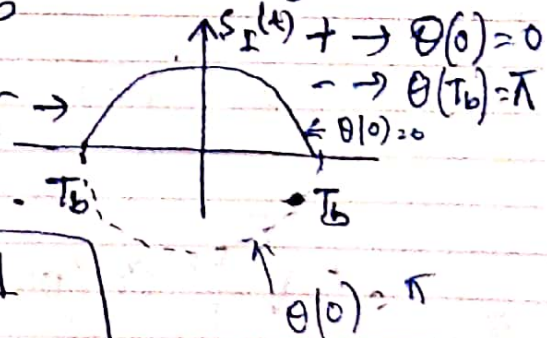 S_I(t) + → θ(0) = 0
- → θ(T_b) = π
→
← θ(0) = 0
T_b
T_b
θ(0) = π